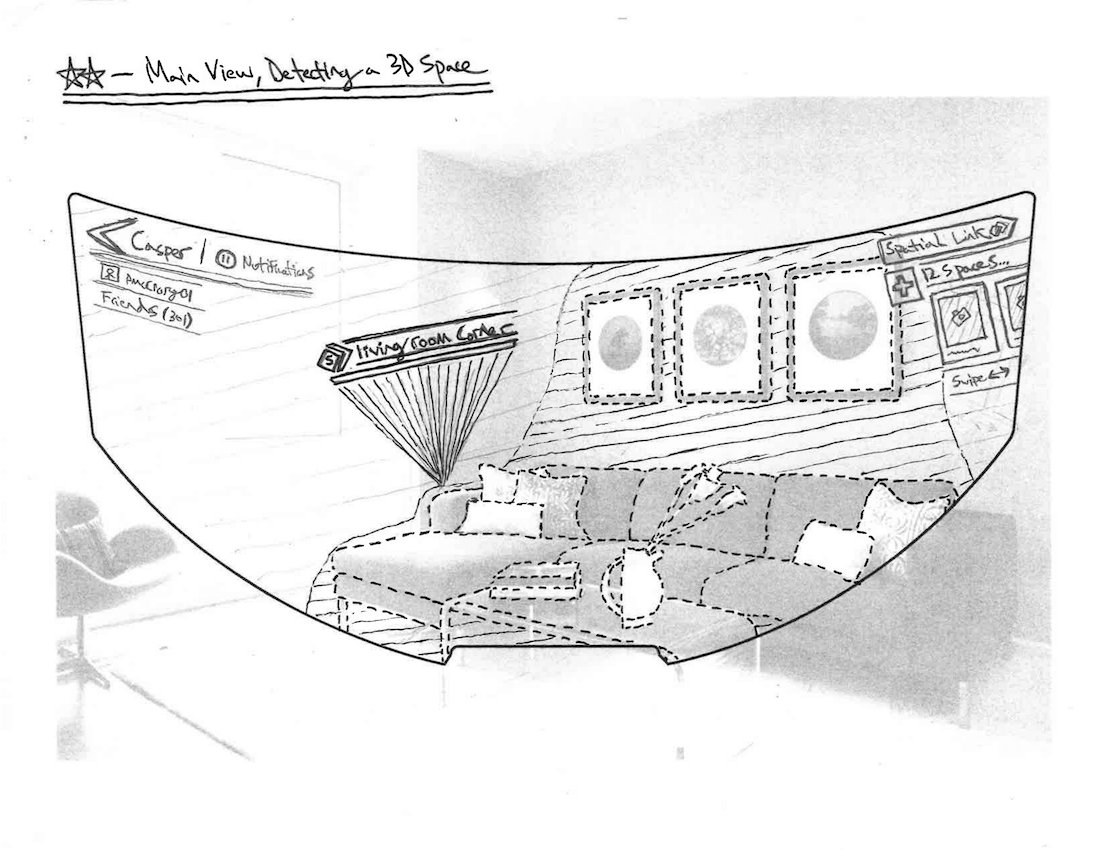 ☆☆ — Main View, Detecting a 3D Space
Casper | 11 Notifications
Friends (301)
S living room Corner
Spatial Link
12 Spaces...
Swipe ↔